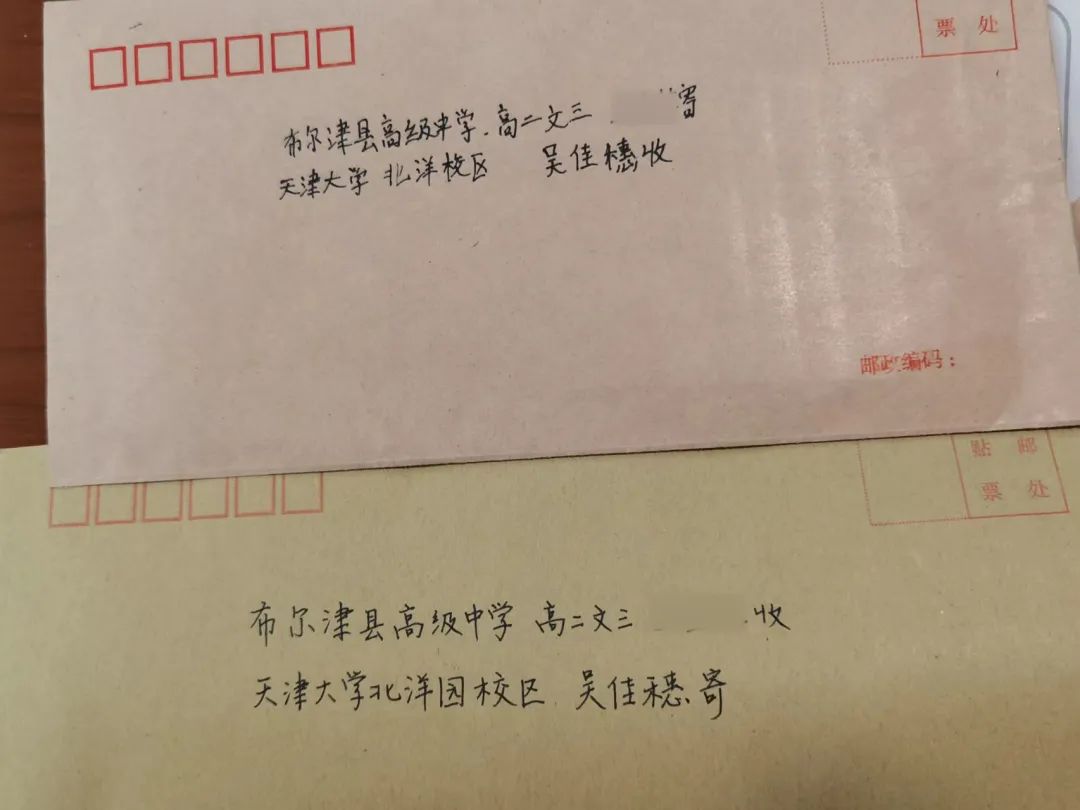 票 处
布尔津县高级中学.高二文三 寄
天津大学 北洋校区 吴佳穗收
邮政编码：
贴 邮
票 处
布尔津县高级中学 高二文三 收
天津大学北洋园校区 吴佳穗寄